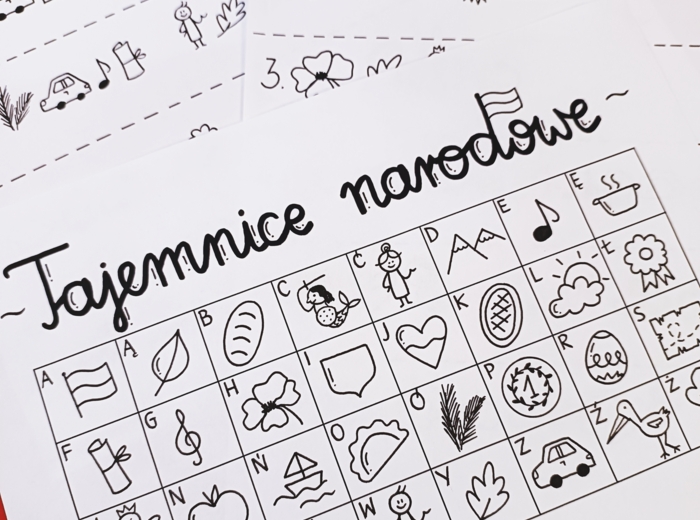 3.
~ Tajemnice narodowe ~
A Ą B C Ć D E Ę
F G H I J K L Ł
N Ń O Ó P R S
W Y Z Ź Ż